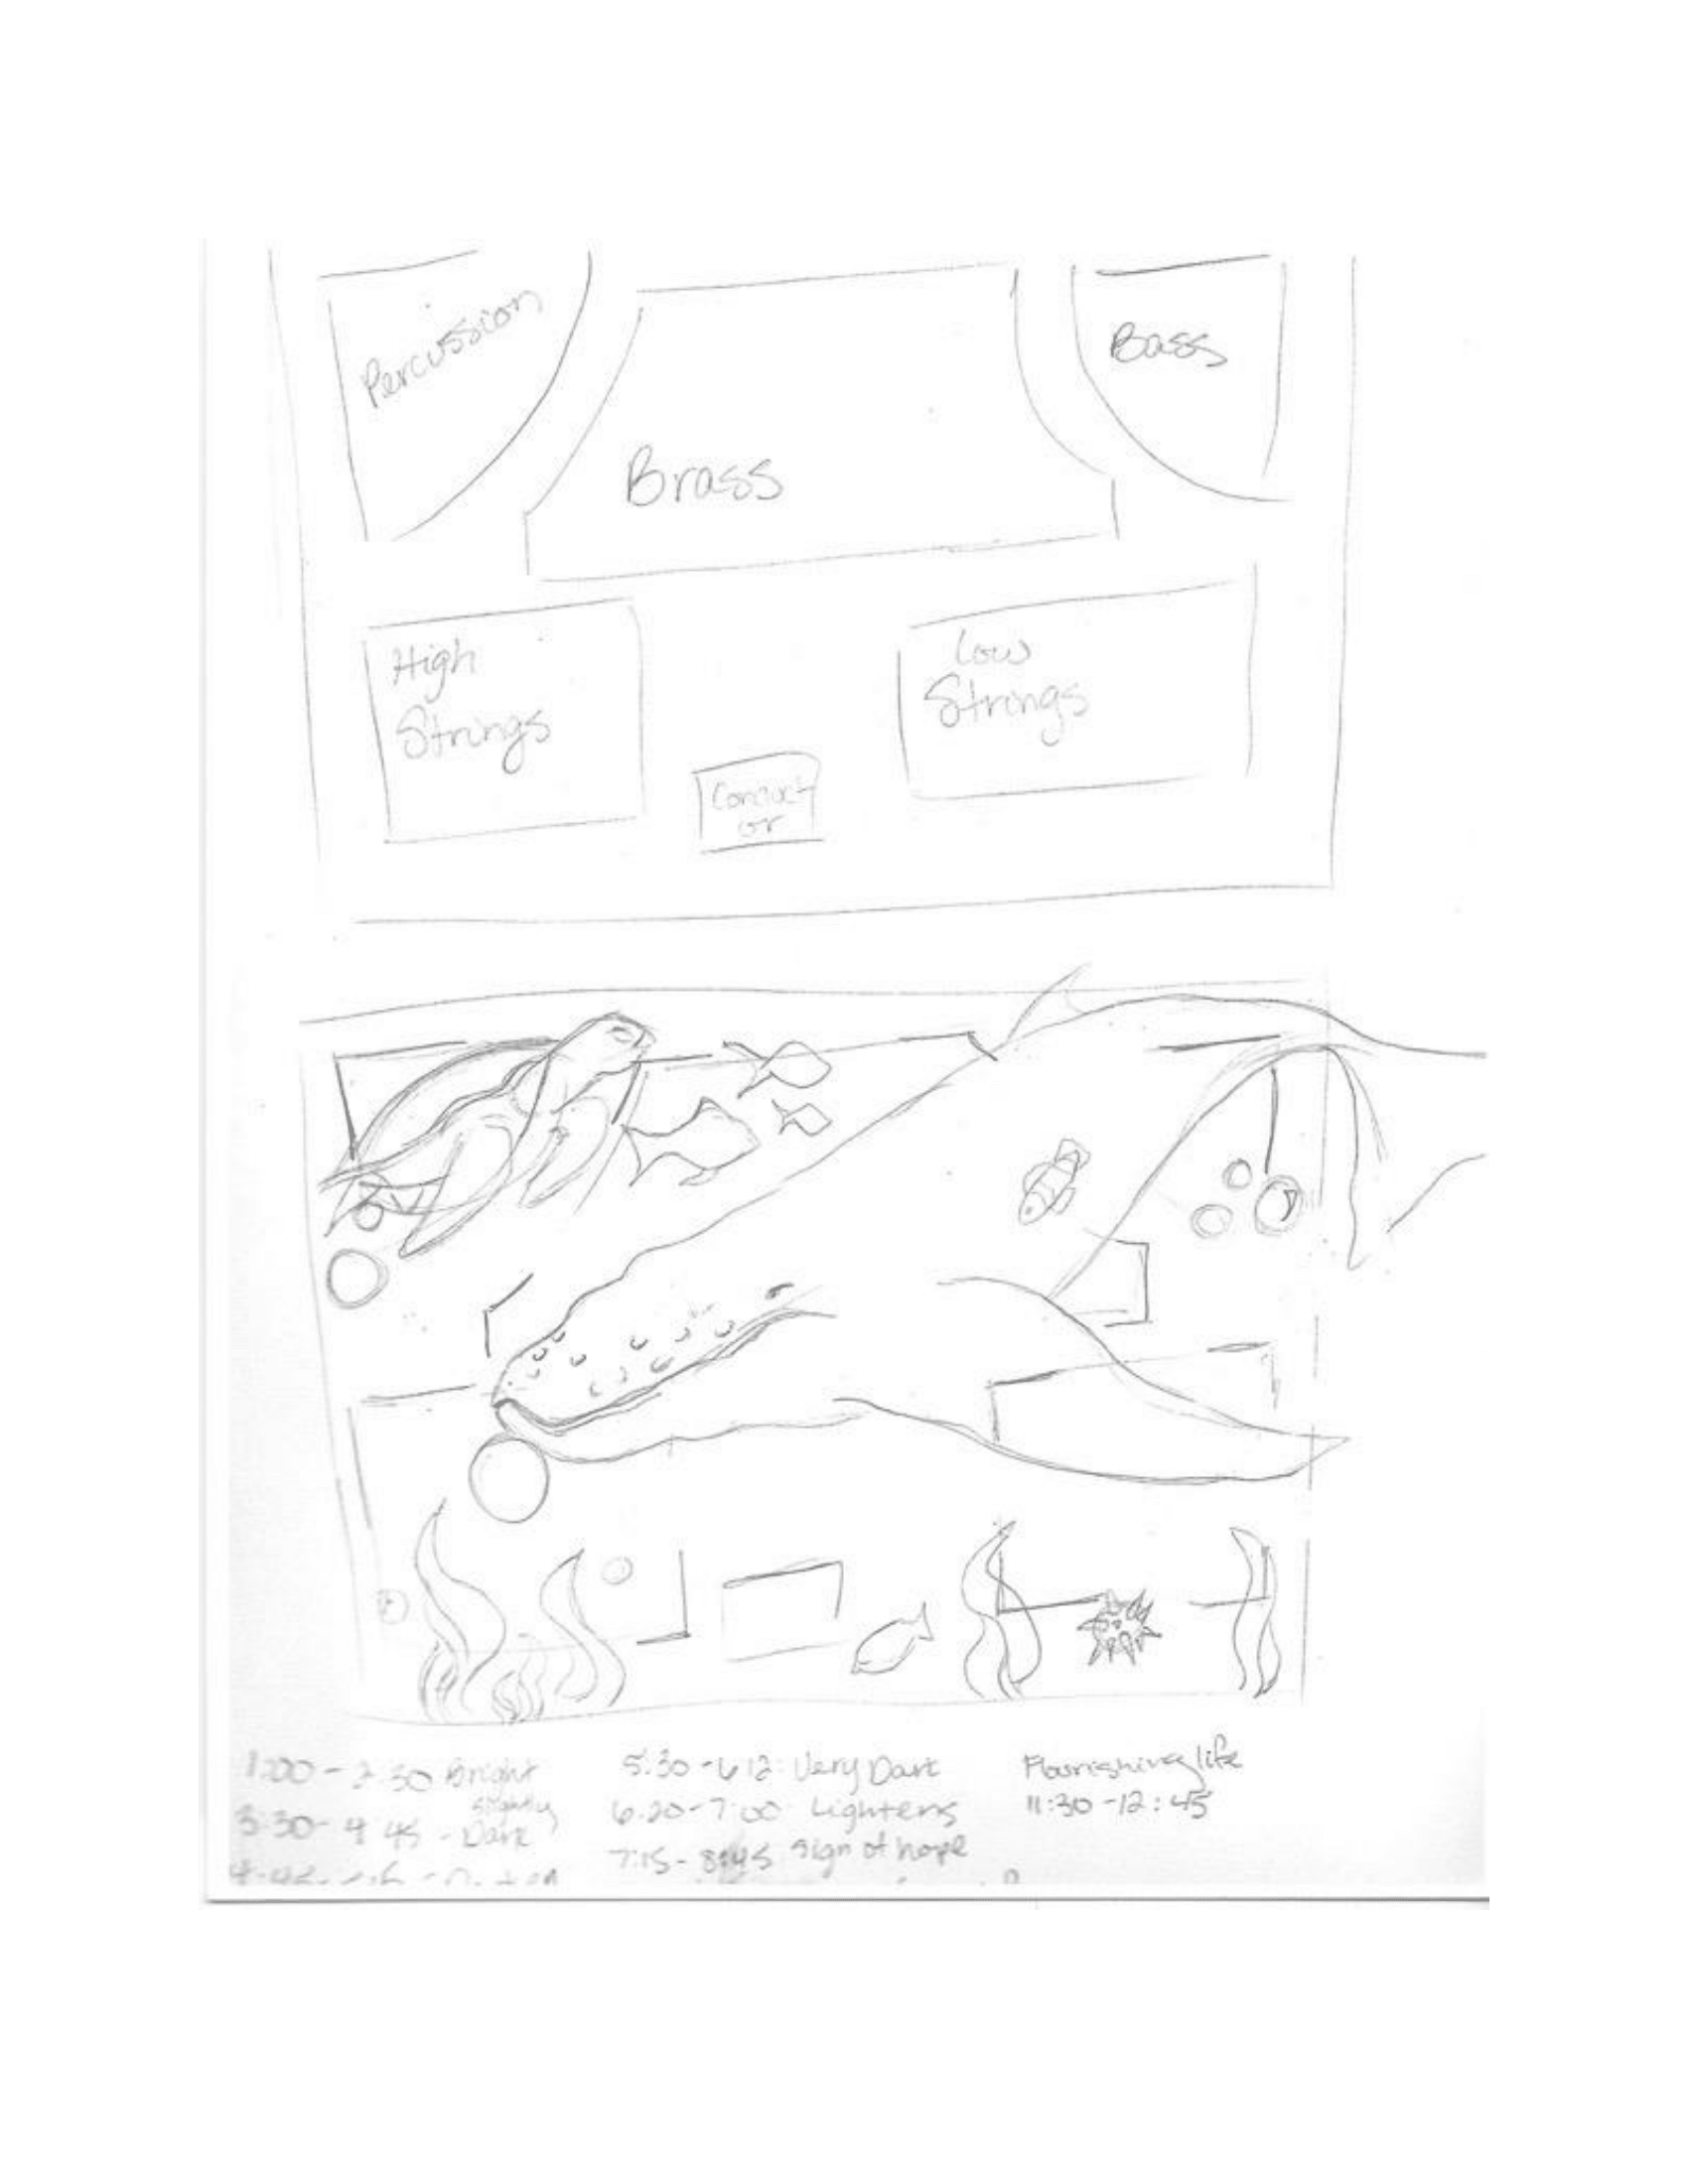 Percussion
Bass
Brass
High
Strings
Low
Strings
Conduct
or
1:00 - 2:30 Bright
slightly
3:30 - 4:45 - Dark
5:30 - 6:12: Very Dark
6:20 - 7:00 Lightens
7:15 - 8:45 sign of hope
Flourishing life
11:30 - 12:45